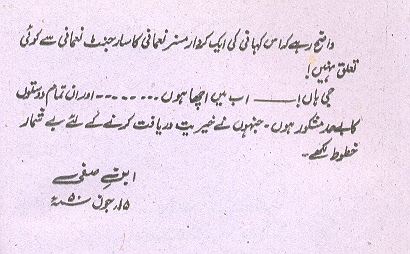 واضح رہے کہ اس کہانی کی ایک کردار مسز نعمانی کا سارجنٹ نعمانی سے کوئی
تعلق نہیں!
جی ہاں! ــــــ اب میں اچھا ہوں ۔۔۔۔۔۔۔ اور ان تمام دوستوں
کا بے حد مشکور ہوں ۔ جنہوں نے خیریت دریافت کرنے کے لئے بے شمار
خطوط لکھے۔
ابنِ صفی
۱۵؍جون ۵۰سنہء